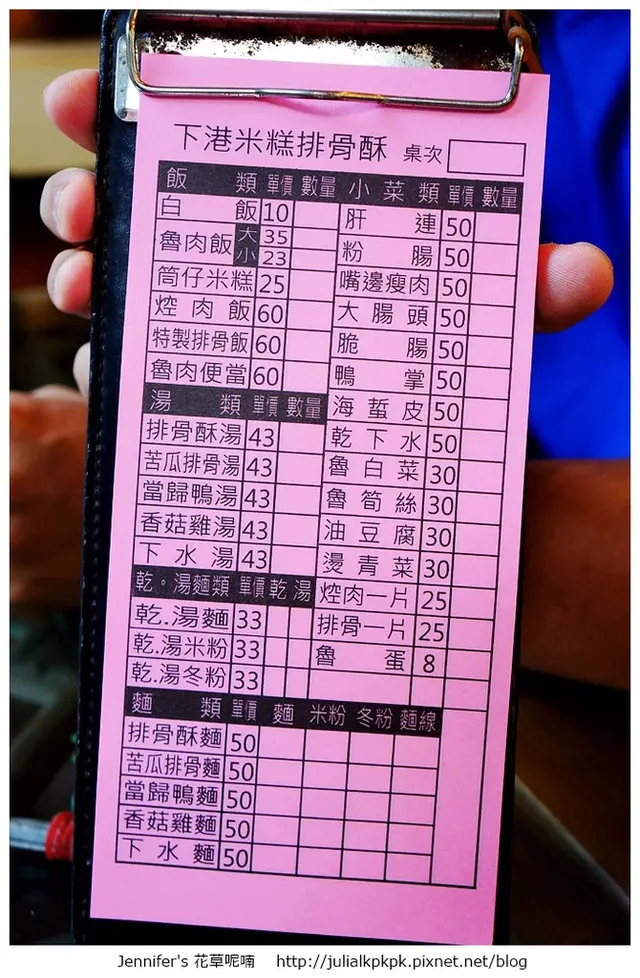 下港米糕排骨酥 桌次
飯類 單價 數量
白飯 10
魯肉飯 大 35
小 23
筒仔米糕 25
焢肉飯 60
特製排骨飯 60
魯肉便當 60
湯類 單價 數量
排骨酥湯 43
苦瓜排骨湯 43
當歸鴨湯 43
香菇雞湯 43
下水湯 43
乾。湯麵類 單價 乾 湯
乾.湯麵 33
乾.湯米粉 33
乾.湯冬粉 33
麵類 單價 麵 米粉 冬粉 麵線
排骨酥麵 50
苦瓜排骨麵 50
當歸鴨麵 50
香菇雞麵 50
下水麵 50
小菜類 單價 數量
肝連 50
粉腸 50
嘴邊瘦肉 50
大腸頭 50
脆腸 50
鴨掌 50
海蜇皮 50
乾下水 50
魯白菜 30
魯筍絲 30
油豆腐 30
燙青菜 30
焢肉一片 25
排骨一片 25
魯蛋 8
Jennifer's 花草呢喃 http://julialkpkpk.pixnet.net/blog